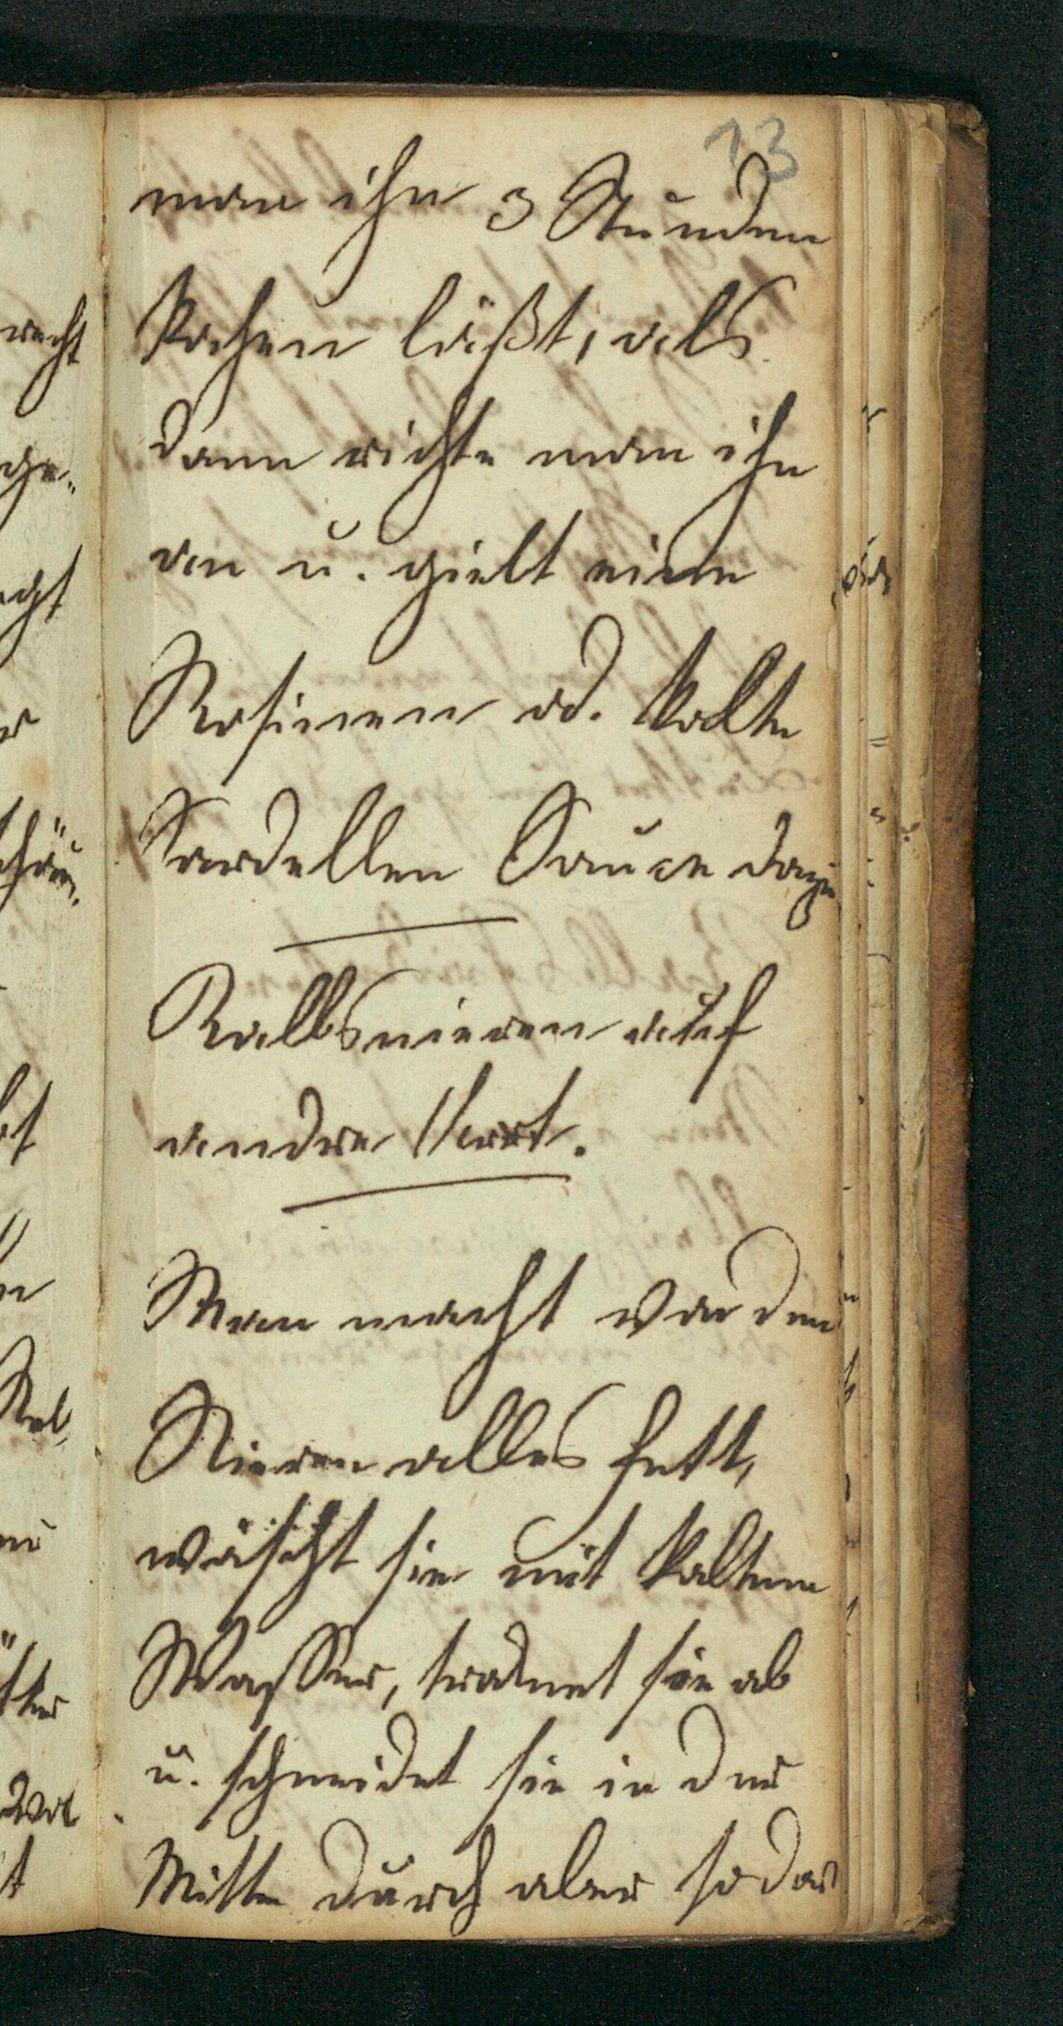 13
man ihn 3 Stunden
kochen läßt, als
dann richte man ihn
an u. giebt eine
Rosinen od. kalte
Sardellen Sauce dazu
Kalbsnieren auf
andre Art.
Man macht von den
Nieren alles Fett,
wäscht sie mit kaltem
Wasser, troknet sie ab
u. schneidet sie in der
Mitte durch aber so das